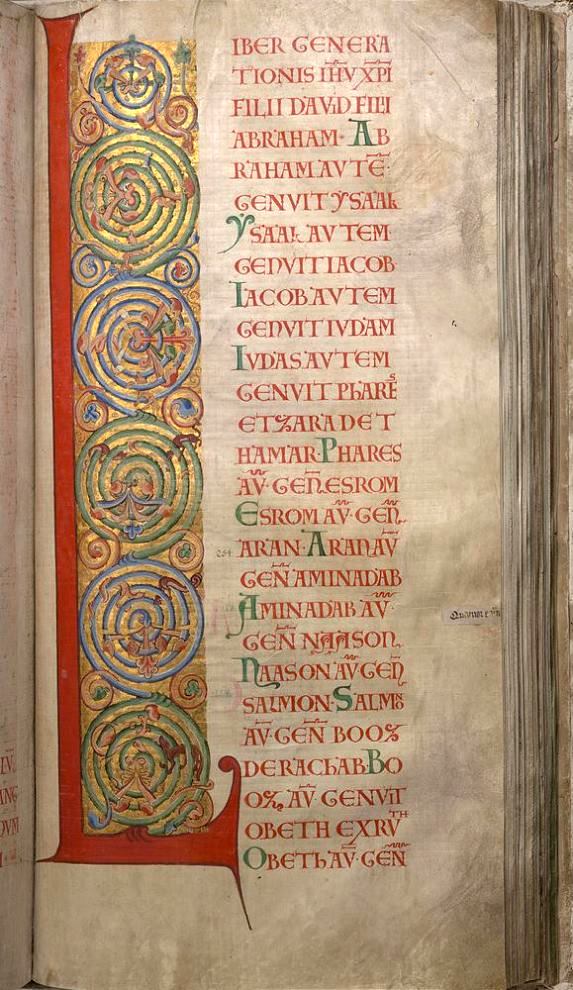 LIBER GENERA
TIONIS IHV XPI
FILII DAVID FILII
ABRAHAM· AB
RAHAM AVTE̅·
GENVIT YSAAK
YSAAK AVTEM
GENVIT IACOB
IACOB AVTEM
GENVIT IVDAM
IVDAS AVTEM
GENVIT PHARES
ET ZARA DE T
HAMAR· PHARES
AV̅· GEN̅ ESROM
ESROM AV̅· GEN̅
ARAN· ARAN AV̅
GEN̅ AMINADAB
AMINADAB AV̅·
GEN̅ NAASON
NAASON AV̅· GEN̅
SALMON· SALMON
AV̅· GEN̅ BOOZ
DE RACHAB· BO
OZ AV̅· GENVIT
OBETH EX RVTH
OBETH AV̅· GEN̅